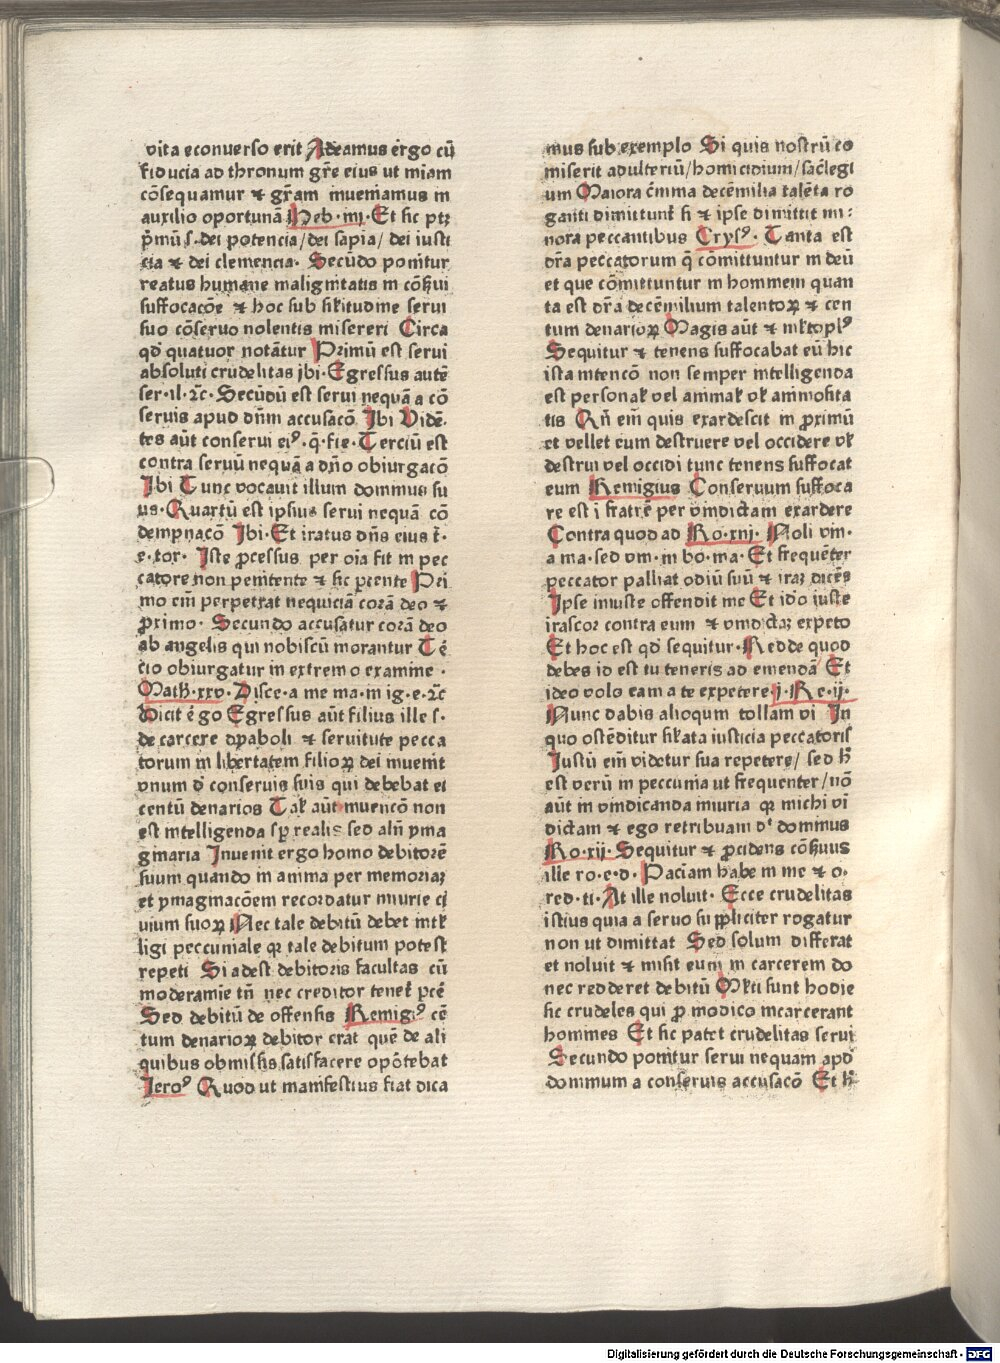 vita econuerso erit Adeamus ergo cū
fiducia ad thronum gr̄e eius ut miam
cōsequamur ⁊ gr̄am inueniamus in
auxilio oportunā Heb·iiij·Et sic ptꝫ
p̄mū s·dei potencia/dei sapīa/dei iusti
cia ⁊ dei clemencia· Secūdo ponitur
reatus humane malignitatis in cōẜui
suffocacōe ⁊ hoc sub sīlitudine serui
suo cōseruo nolentis misereri Circa
qd̄ quatuor notātur Primū est serui
absoluti crudelitas jbi·Egressus autē
ser·il·⁊c·Secūdū est serui nequā a cō
seruis apud dn̄m accusacō Jbi Vidē-
tes aūt conserui ei⁹·q̄·fie·Terciū est
contra seruū nequā a dn̄o obiurgacō
Jbi Tunc vocauit illum dominus su
us·Quartū est ipsius serui nequā cō
dempnacō Jbi·Et iratus dn̄s eius t̄·
e·tor· Jste ꝓcessus per oīa fit in pec
catore non penitente ⁊ sic p̄cente Pri
mo em̄ perpetrat nequiciā corā deo ⁊
ꝓximo· Secundo accusatur corā deo
ab angelis qui nobiscū morantur Tē
cio obiurgatur in extremo examine·
Math·xxv·Disce·a me ma·in ig·e·⁊c
Dicit ē go Egressus aūt filius ille s·
de carcere dyaboli ⁊ seruitute pecca
torum in libertatem filioꝝ dei inuenit
vnum d̄ conseruis suis qui debebat ei
centū denarios Tał aūt inuencō non
est intelligenda sp̄ realis sed alīn yma
ginaria Jnuenit ergo homo debitorē
suum quando in anima per memoriaꝫ
et ymaginacōem recordatur iniurie ci
uium suoꝝ Nec tale debitū debet intel
ligi peccuniale qꝫ tale debitum potest
repeti Si adest debitoris facultas cū
moderamīe tn̄ nec creditor tenet̄ pcē
Sed debitū de offensis Remigi⁹ cē
tum denarioꝝ debitor erat quē de ali
quibus obmissis satisfacere opōtebat
Jero⁹ Quod ut manifestius fiat dica
mus sub exemplo Si quis nostrū cō
miserit adulteriū/homicidium/sac̄legi
um Maiora c̄mina decē milia talēta ro
ganti dimittunt̄ si ⁊ ipse dimittit mi:
nora peccantibus Crys⁹· Tanta est
dr̄a peccatorum q̄ cōmittuntur in deū
et que cōmittuntur in hominem quan
ta est dr̄a decē milium talentoꝝ ⁊ cen
tum denarioꝝ Magis aūt ⁊ mltopl⁹
Sequitur ⁊ tenens suffocabat eū hic
ista intencō non semper intelligenda
est personał vel animał vł animosita
tis Qn̄ em̄ quis exardescit in ꝓximū
et vellet eum destruere vel occidere vł
destrui vel occidi tunc tenens suffocat
eum Remigius Conseruum suffoca
re est ī fratrē per vindictam exardere
Contra quod ad Ro·xiij· Noli vin-
a ma·sed vin·in bo·ma·Et frequēter
peccator palliat odiū suū ⁊ iraꝫ dicēs
Jpse iniuste offendit me Et idō iuste
irascor contra eum ⁊ vindictaꝫ expeto
Et hoc est qd̄ sequitur·Redde quod
debes id est tu teneris ad emendā Et
ideo volo eam a te expetere j·Re·ij·
Nunc dabis alioquin tollam vi In
quo ostēditur sīłata iusticia peccatoris
Justū em̄ videtur sua repetere/ sed h̄
est verū in peccunia ut frequenter/nō
aūt in vindicanda iniuria qꝫ michi vī
dictam ⁊ ego retribuam dt̄ dominus
Ro·xij·Sequitur ⁊ ꝓcidens cōẜuus
ille ro·e·d· Paciam habe in me ⁊ o·
red·ti·At ille noluit· Ecce crudelitas
istius quia a seruo suppliciter rogatur
non ut dimittat Sed solum differat
et noluit ⁊ misit eum in carcerem do
nec redderet debitū Młti sunt hodie
sic crudeles qui ꝓ modico incarcerant
homines Et sic patet crudelitas serui
Secundo ponitur serui nequam apd
dominum a conseruis accusacō Et h̄
Digitalisierung gefördert durch die Deutsche Forschungsgemeinschaft - DFG